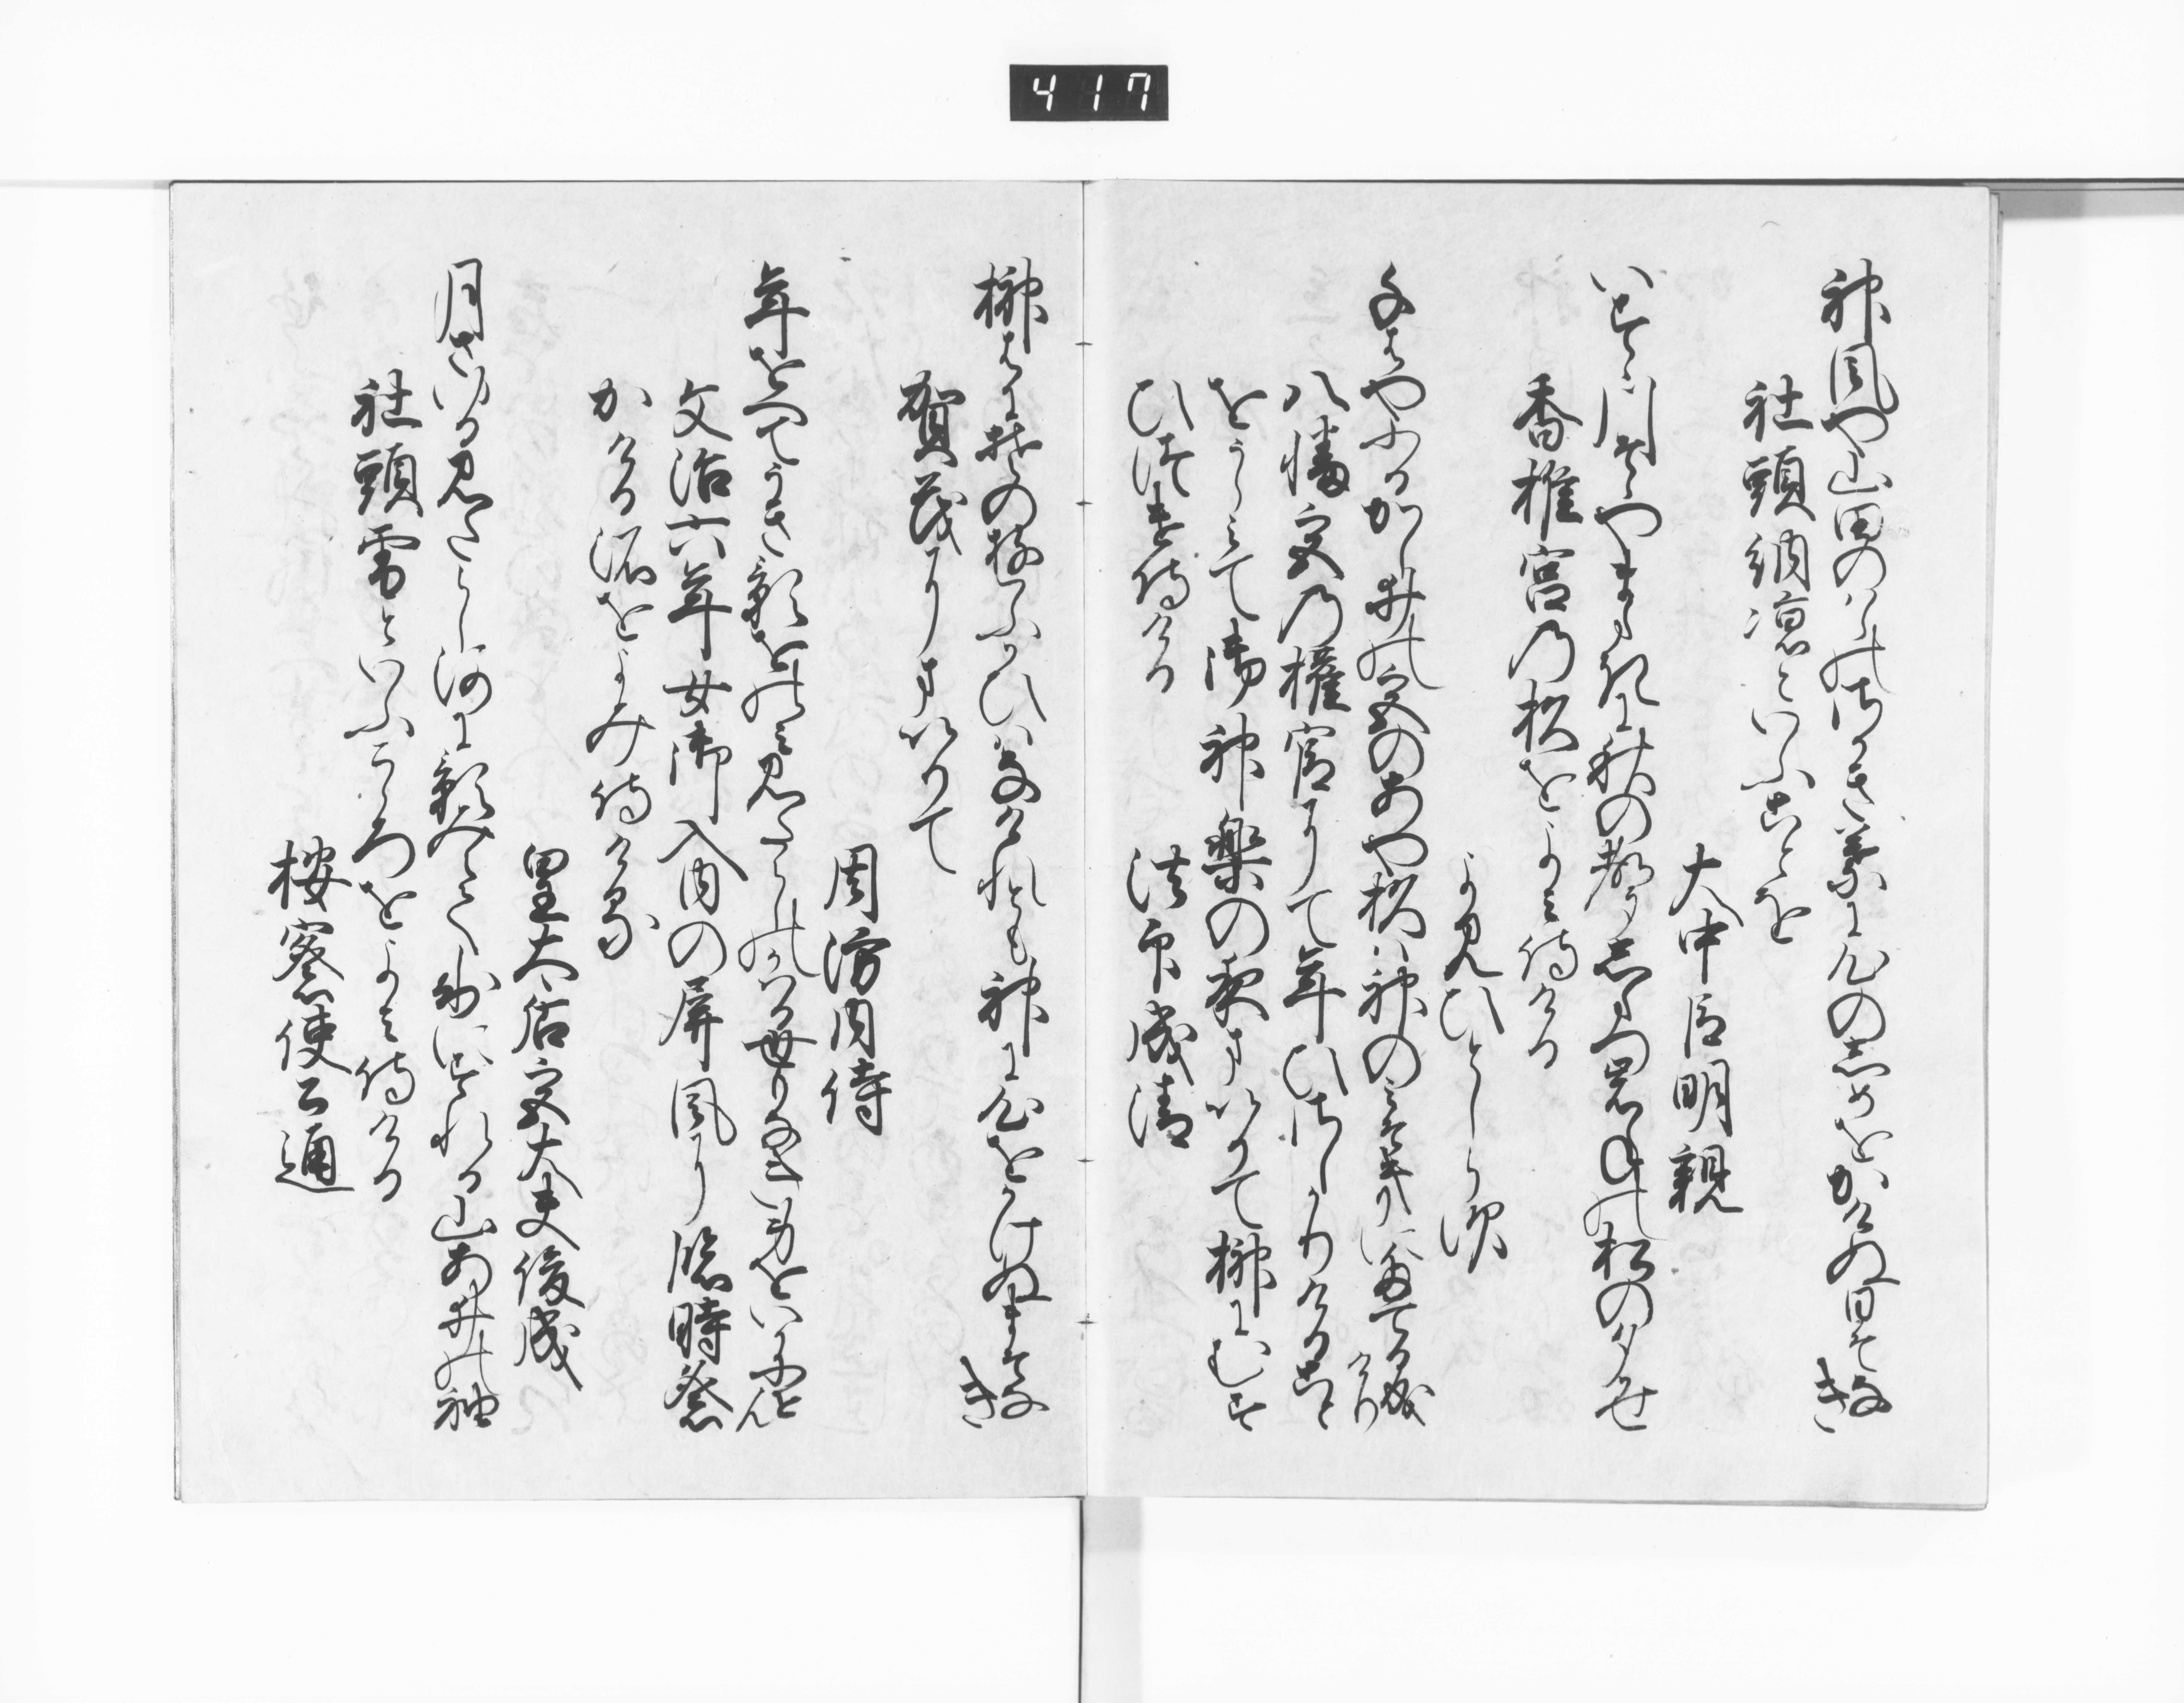 417
神風や山田のはらのさかき葉に心のしめをかけぬ日そなき
社頭納凉といふことを
大中臣明親
いすゝ川そらやまたきに秋の声したつ岩ねの松の夕かせ
香椎宮乃杉をよみ侍ける
よみひとしらす
千はやふるかしゐの宮のあや杉は神のみそきにたてる成けり
八幡宮乃権官にて年ひさしかりけること
をうらみて御神楽の夜まいりて榊にむす
ひつけ侍ける
法印成清
榊はにそのいふかひはなけれとも神に心をかけぬまそなき
賀茂にまいりて
周防内侍
年をへてうき影をのみみたらしのかはる世もなき身をいかにせん
文治六年女御入内の屏風に臨時祭
かける所をよみ侍ける
皇太后宮大夫俊成
月さゆるみたらし河に影みえて氷にすれる山あゐの袖
社頭雪といふこゝろをよみ侍ける
按察使公通